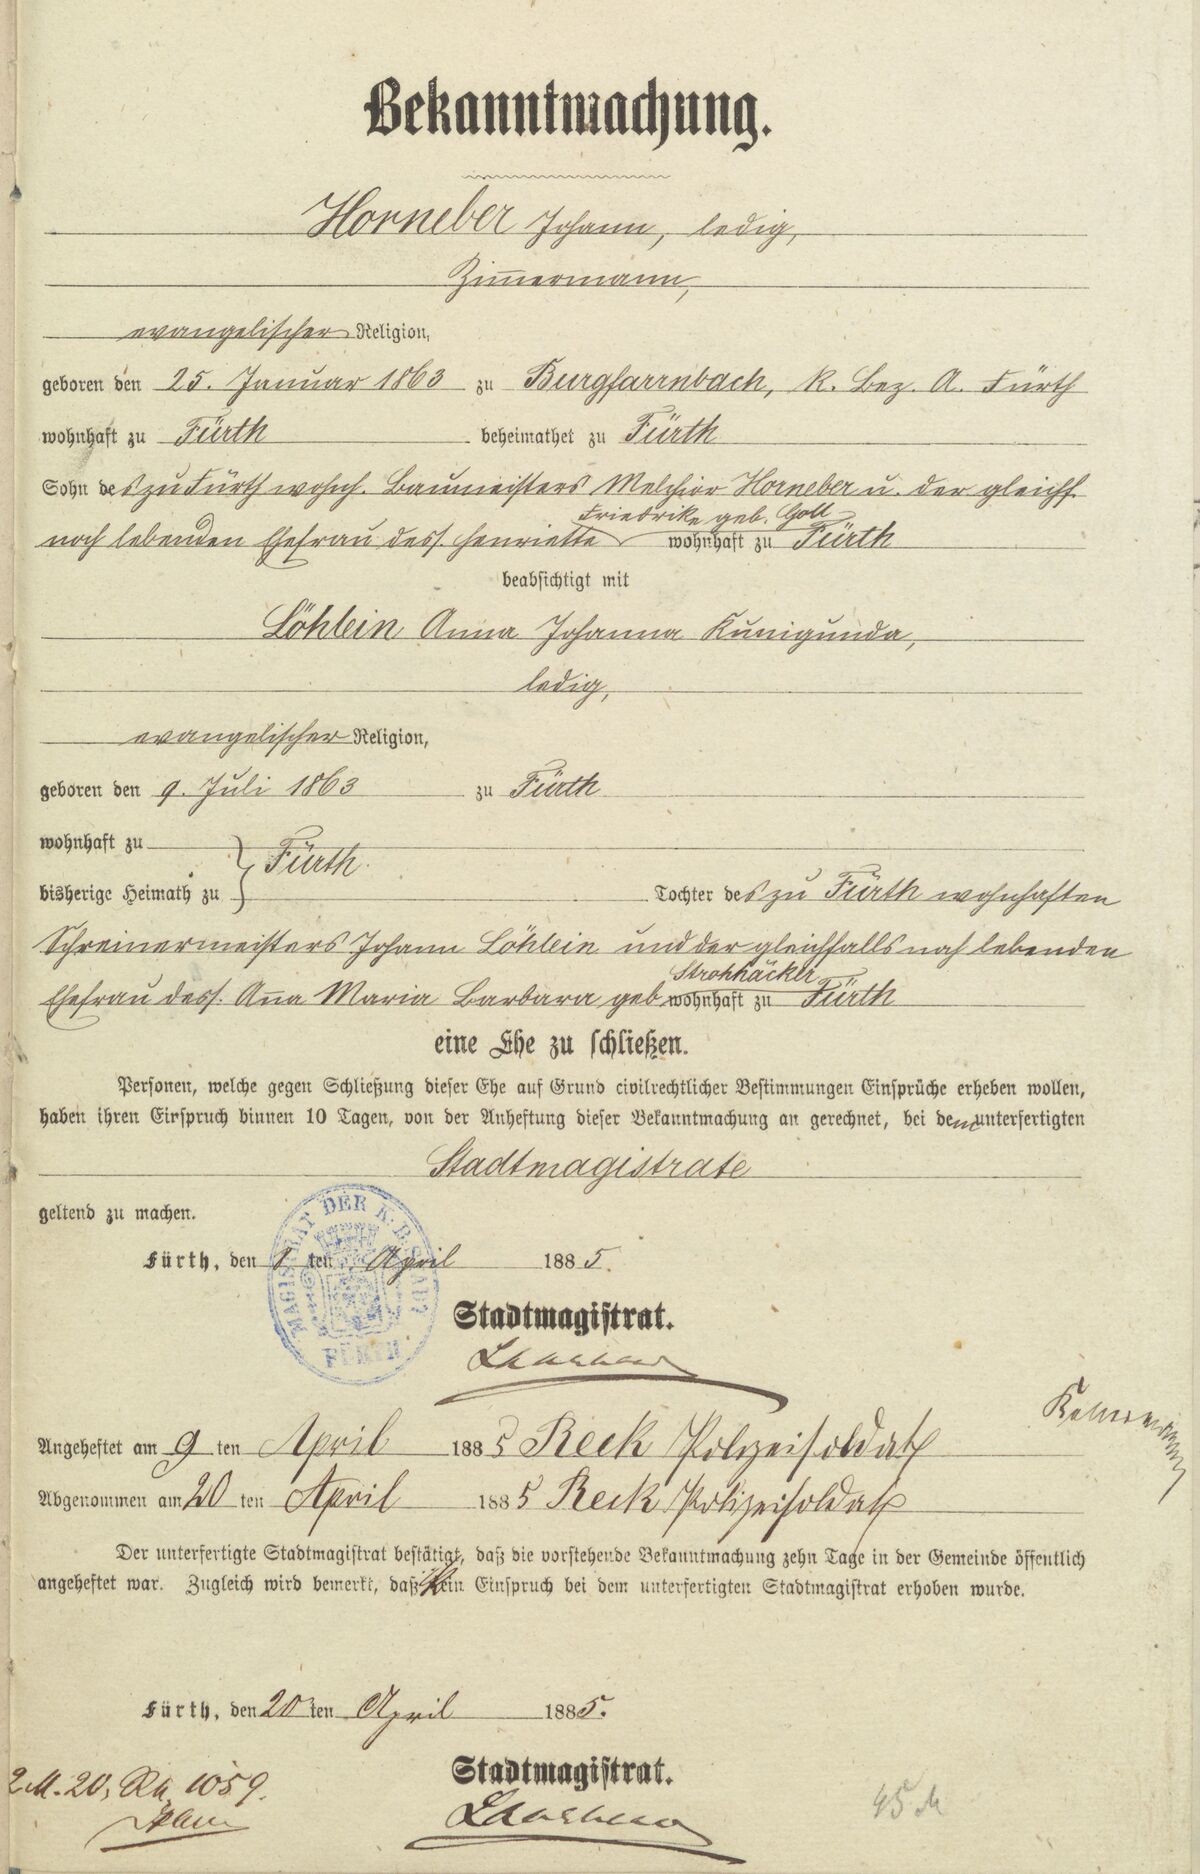 Bekanntmachung.
Horneber Johann, ledig,
Zimmermann,
evangelischer Religion,
geboren den 25. Januar 1863 zu Burgfarrnbach, k. Bez. A. Fürth
wohnhaft zu Fürth beheimathet zu Fürth
Sohn des zu Fürth wohnh. Baumeisters Melchior Horneber u. der gleichf.
Friedrike geb. Goll
noch lebenden Ehefrau dess. Henriette wohnhaft zu Fürth
beabsichtigt mit
Löhlein Anna Johanna Kunigunda,
ledig,
evangelischer Religion,
geboren den 9. Juli 1863 zu Fürth
wohnhaft zu
Fürth.
bisherige Heimath zu Tochter des zu Fürth wohnhaften
Schreinermeisters Johann Löhlein und der gleichfalls noch lebenden
Strohhäcker
Ehefrau dess. Anna Maria Barbara geb. wohnhaft zu Fürth
eine Ehe zu schließen.
Personen, welche gegen Schließung dieser Ehe auf Grund civilrechtlicher Bestimmungen Einsprüche erheben wollen,
haben ihren Einspruch binnen 10 Tagen, von der Anheftung dieser Bekanntmachung an gerechnet, bei dem unterfertigten
Stadtmagistrate
geltend zu machen.
MAGISTRAT DER K. B. STADT FÜRTH
Fürth, den ten April 1885.
Stadtmagistrat.
Angeheftet am 9 ten April 1885 Reck Polizeisoldat
Abgenommen am 20 ten April 1885 Reck Polizeisoldat
Der unterfertigte Stadtmagistrat bestätigt, daß die vorstehende Bekanntmachung zehn Tage in der Gemeinde öffentlich
angeheftet war. Zugleich wird bemerkt, daß kein Einspruch bei dem unterfertigten Stadtmagistrat erhoben wurde.
Fürth, den 20 ten April 1885.
Stadtmagistrat.
2 M. 20, 1059.
45